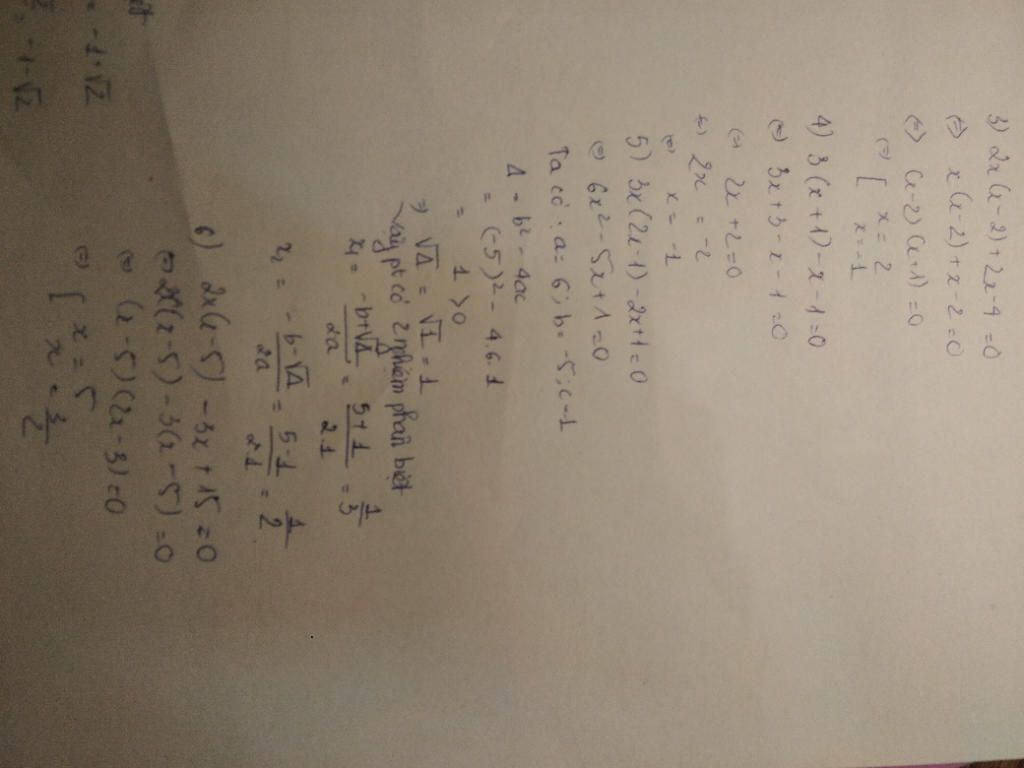 = -1+√2
= -1-√2
3) 2x(x-2)+2x-4 = 0
(=) x(x-2)+x-2 = 0
(=) (x-2)(x+1) = 0
(=) [ x = 2
x = -1
4) 3(x+1)-x-1 = 0
(=) 3x+3-x-1 = 0
(=) 2x+2 = 0
(=) 2x = -2
(=) x = -1
5) 3x(2x-1)-2x+1 = 0
(=) 6x²-5x+1 = 0
Ta có: a = 6; b = -5; c = 1
Δ = b²-4ac
= (-5)² - 4.6.1
= 1 > 0
=) √Δ = √1 = 1
Vậy pt có 2 nghiệm phân biệt
x₁ = -b+√Δ / 2a = 5+1 / 2.1 = 1/3
x₂ = -b-√Δ / 2a = 5-1 / 2.1 = 1/2
6) 2x(x-5) - 3x + 15 = 0
(=) 2x(x-5) - 3(x-5) = 0
(=) (x-5)(2x-3) = 0
(=) [ x = 5
x = 3/2